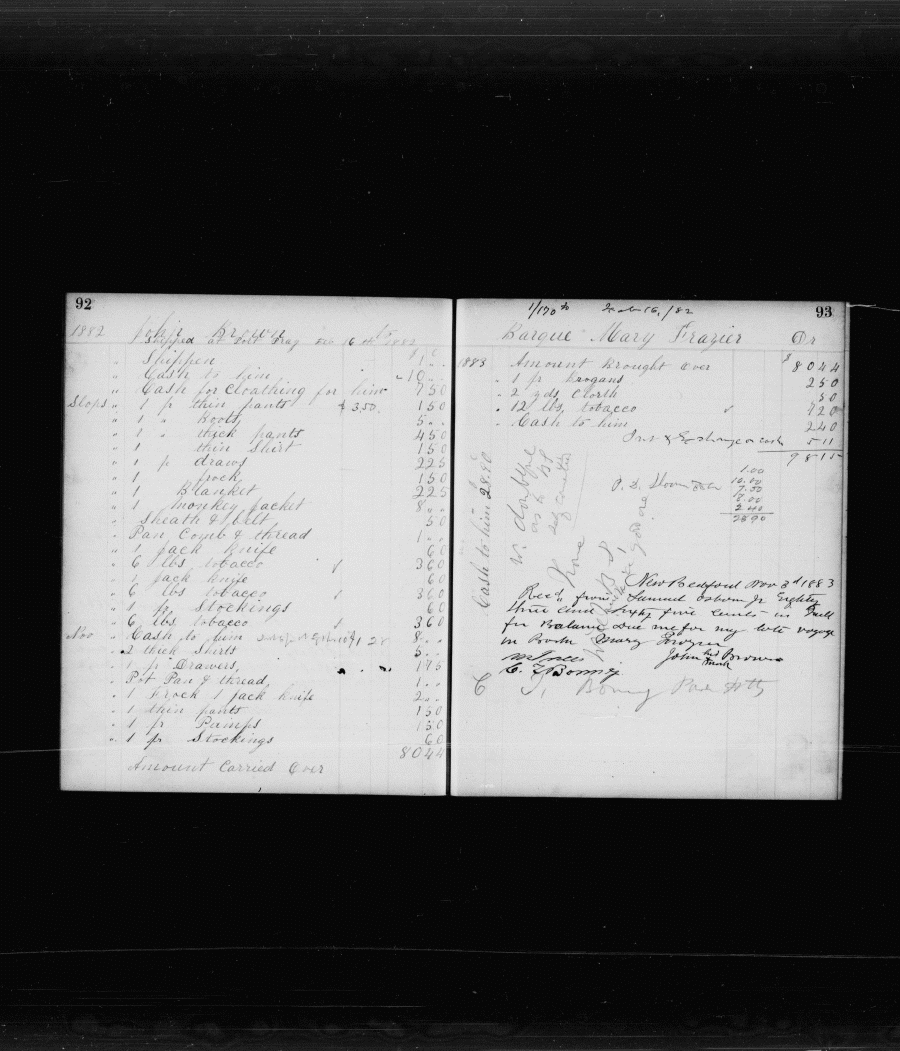 92
1882 John Brown
Shipped at Port Prag Feb 16th 1882
Shippen 1 ..
" Cash to him 10 ..
" Cash for Cloathing for him 7 50
Slops " 1 pr thin pants $3.50 1 50
" 1 " Boots, 5 ..
" 1 " thick pants 4 50
" 1 thin Shirt 1 50
" 1 p draws 2 25
" 1 frock 1 50
" 1 Blanket 2 25
" 1 monkey jacket 8 ..
" Sheath & belt 50
" Pan, Comb & thread 1 ..
" 1 jack knife 60
" 6 lbs tobacco 3 60
" 1 jack knife 60
" 6 lbs tobacco 3 60
" 1 pr Stockings 60
" 6 lbs tobacco 3 60
Nov " Cash to him 8 ..
" 2 thick Shirts 5 ..
" 1 pr Drawers, 1 75
" Pot Pan & thread, 1 ..
" 1 Frock 1 jack knife 2 ..
" 1 thin pants 1 50
" 1 pr Pumps 1 50
" 1 pr Stockings 60
80 44
Amount Carried Over
1/170th Feb 16, /82
93
Barque Mary Frazier Dr
1883 Amount Brought Over $ 80 44
" 1 pr brogans 2 50
" 2 yds, Cloth 50
" 12 lbs, tobacco 7 20
" Cash to him 2 40
& Exchange on cash 5 11
98 15
1.00
10.00
7.50
8.00
2.40
28.90
Cash to him 28.90
New Bedford Nov 3d 1883
Recd, from Samuel Osborn Jr Eighty
three and Sixty five cents in Full
for Balance Due me for my late voyage
in Bark Mary Frazier
John his mark Brown